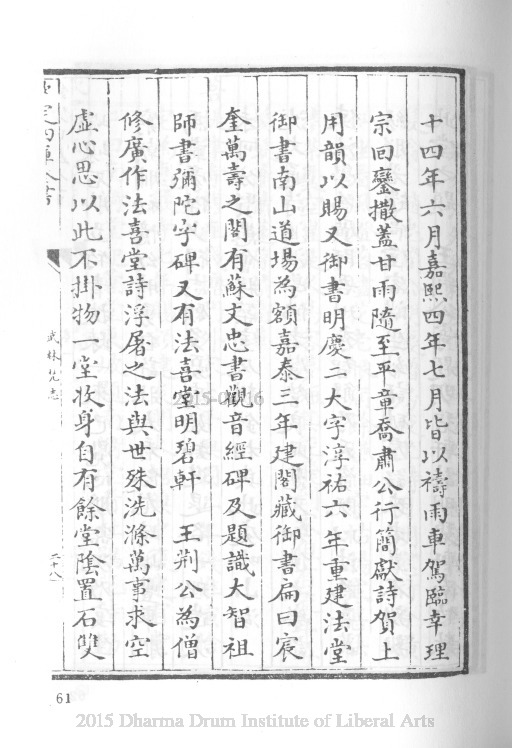 十四年六月嘉熙四年七月皆以禱雨車駕臨幸理
宗回鑾撒蓋甘雨隨至平章喬肅公行簡獻詩賀上
用韻以賜又御書明慶二大字淳祐六年重建法堂
御書南山道場為額嘉泰三年建閣藏御書扁曰宸
奎萬壽之閣有蘇文忠書觀音經碑及題識大智祖
師書彌陀字碑又有法喜堂明碧軒 王荊公為僧
修廣作法喜堂詩浮屠之法與世殊洗滌萬事求空
虛心思以此不掛物一堂收身自有餘堂陰置石雙
武林梵志
二十八
61
2015 Dharma Drum Institute of Liberal Arts